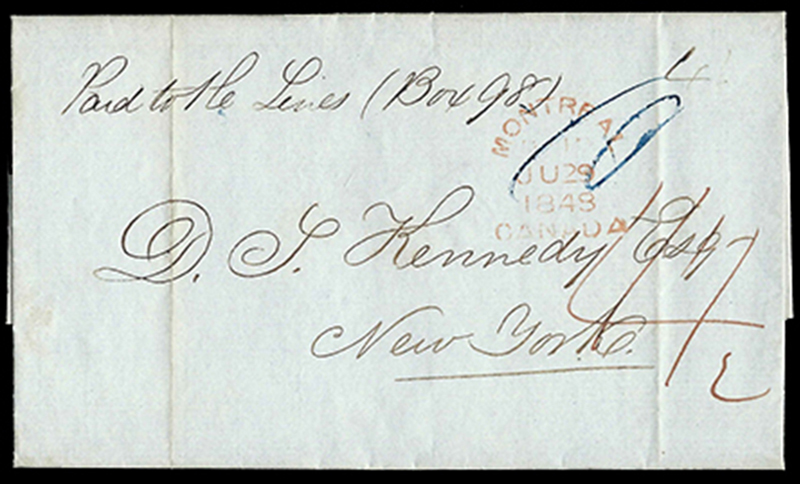 Paid to the Lines (Box 98)
10
MONTREAL
JU 29
1848
CANADA
D. S. Kennedy Esq
New York.
4 1/2